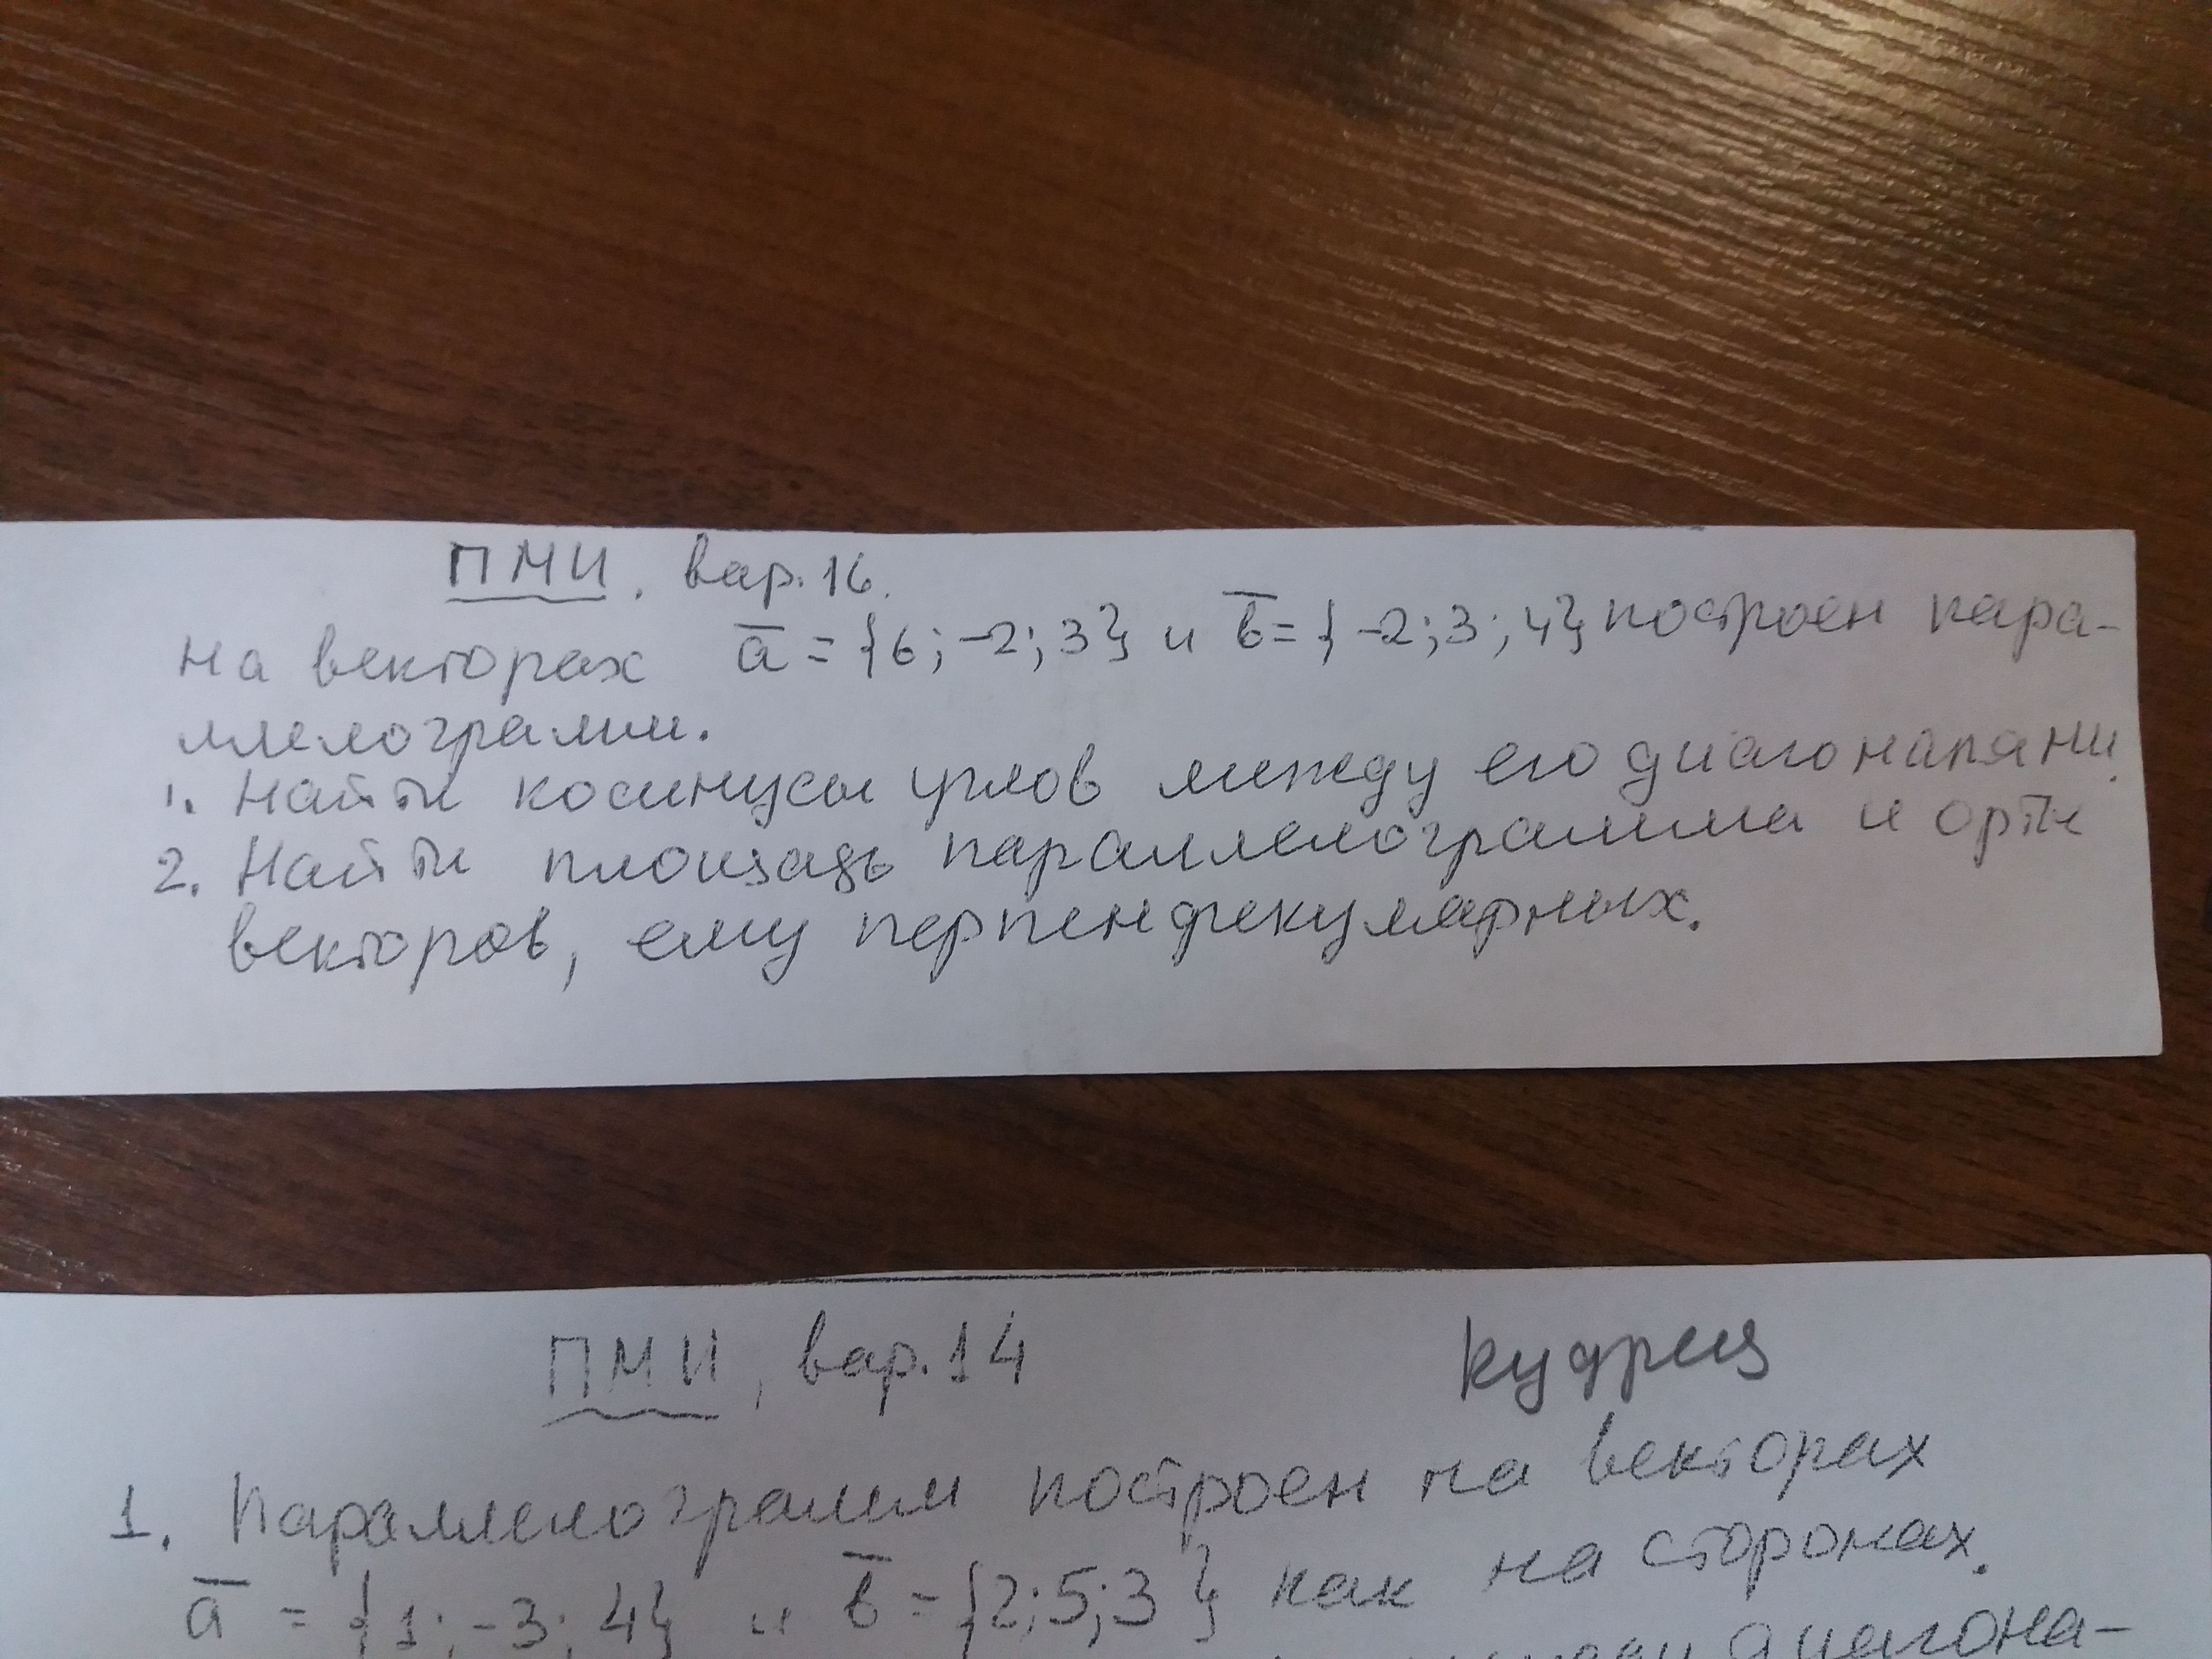 ПМИ, вар. 16.
На векторах a̅ = {6; -2; 3} и b̅ = {-2; 3; 4} построен пара-
ллелограмм.
1. Найти косинусы углов между его диагоналями.
2. Найти площадь параллелограмма и орты
векторов, ему перпендикулярных.
ПМИ, вар. 14 Кудрец
1. Параллелограмм построен на векторах
a̅ = {1; -3; 4} и b̅ = {2; 5; 3} как на сторонах.
диагона-